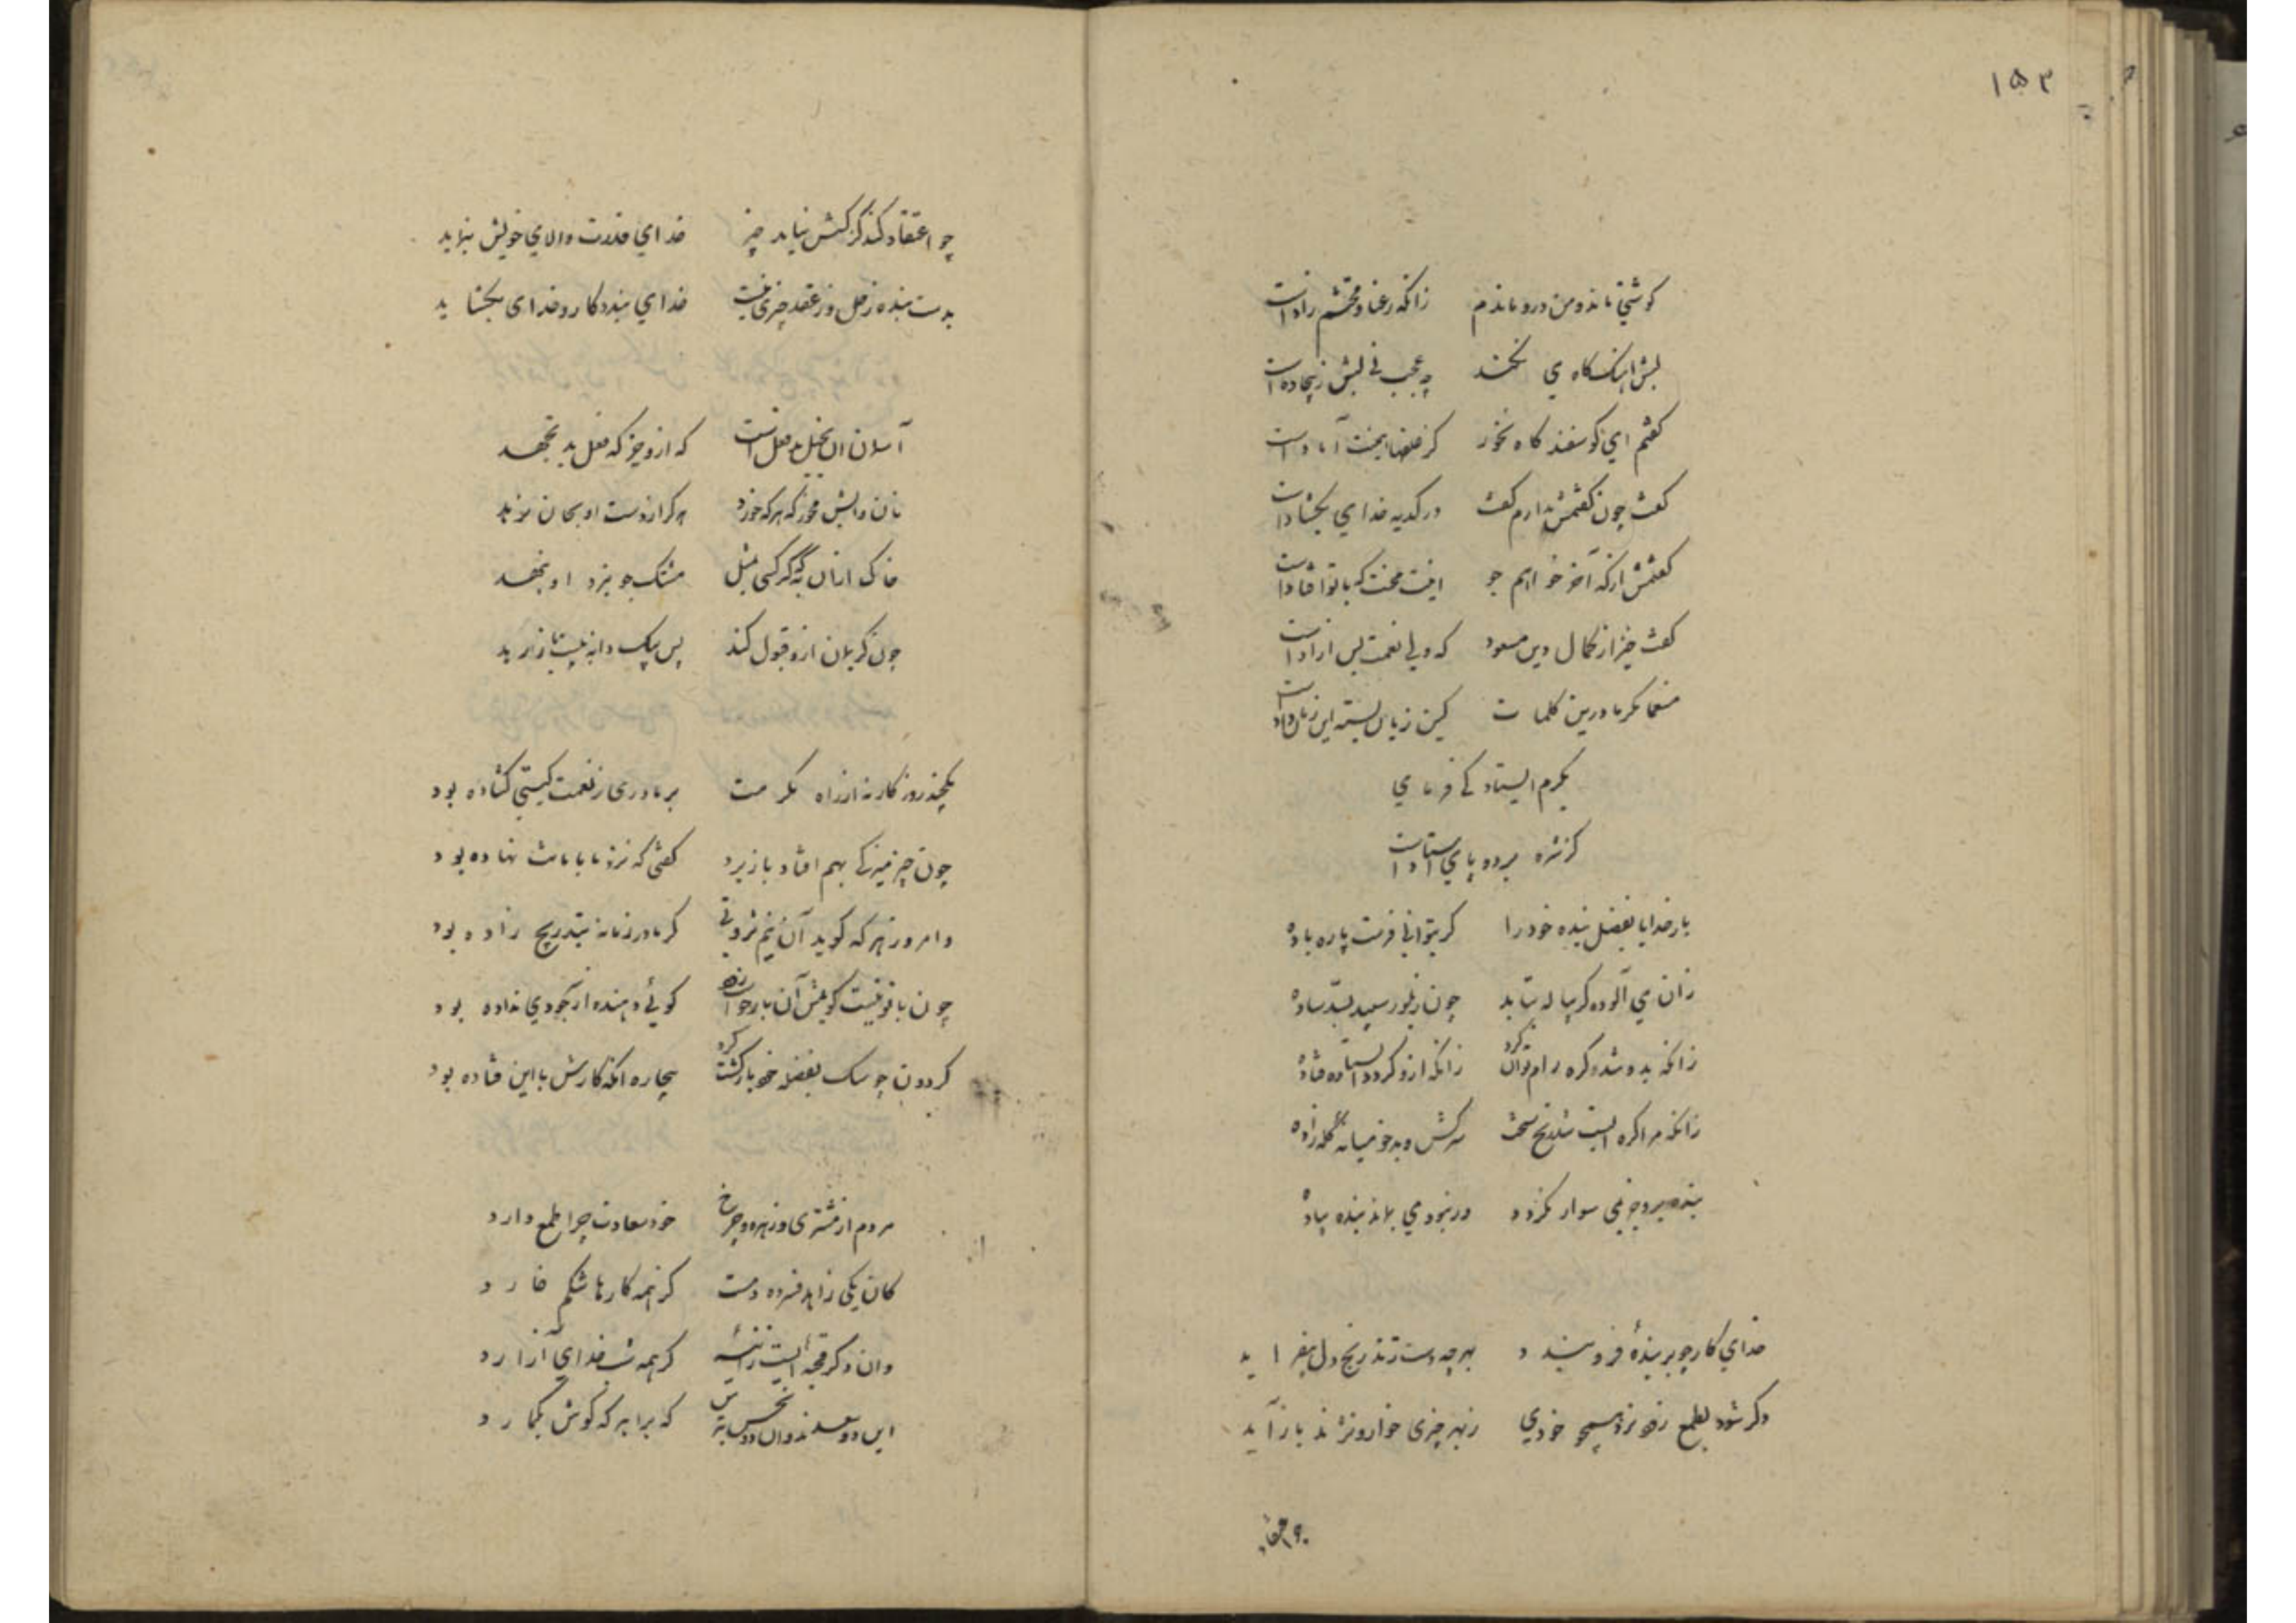 ۱۵۳
کوشتی نماند و من درو ماندم زانکه رعنا و محتشم زادست
لبش آهنگ کاه می نکند چه عجب نی لبش ز بیجاده است
کفتم ای کوسفند کاه بخور کز علفها همینت آمادست
کفت جون کفتمش ندارم کفت در کدیه خدای بکشادست
کفتمش ار نه آخر خواهم جو اینت محنت که با تو افتادست
کفت خیز از کمال دین مسعود که ولی نعمت بس آزادست
منعما مکرما درین کلمات کین زبان بسته این زمان دادست
بکرم ایستاد کی فرمای
کز شره مرده پای استادست
بار خدایا بفضل بنده خود را کر بتوانی فرست پاره باده
زان می آلوده کر پیاله بتابد چون ز بلور سپید بسّد ساده
زانکه بدو شد و کره رام توان کرد زانکه ازو کردد ایستاده فتاده
زانکه مرا کره ایست تند بخ سخت سرکش و بدخو میانه کله زاده
بنده بیرون نمی سوار نکردد ور نبود می بماند بنده پیاده
خدای کار چو بر بندهٔ فرو بندد بهر چه دست زند رنج دل بیفزاید
وکر شود بطمع زود نزد همچو خودی ز بهر چیزی خوار و نژند باز آید
چو اعتقاد
چو اعتقاد کند کز کسش نیاید چیز خدای قدرت والای خویش بنماید
بدست بنده ز حل و ز عقد چیزی نیست خدای بندد کار و خدای بکشاید
آسمان آن بخیل بد فعل است که ازو جز که فعل بد نجهد
نان و آبش مخور که هر که خورد هرکز از دست او بجان نرهد
خاک از آن به که کر کسی بمثل مشک جوید ازو بجهد
چون کریمان ازو قبول کنند پس یک دانه پیش باز نهد
یکچند روزکار نه از راه مکرمت بر ما دری ز نعمت کیتی کشاده بود
چون چیزکی بهم افتاد باز برد کفتی که نزد ما بامانت نهاده بود
و امروز هر که کوید آن نیم ثروتی کز مادر زمانه بتدریج زاده بود
چون با تو نیست کویمش آن باز خواسته کوئی دهنده از سر جودی نداده بود
کردون چو سک بفضله خود بازکشت کرد بیچاره آنکه کارش با این فتاده بود
مردم از مشتری و زهره و چرخ خود سعادت چرا طمع دارد
کان یکی زاهد فسرده دمست کز همه کارها شکم خارد
وان دکر قحبه ایست زانیه کز همه شب خدای آزارد
این دو سعدند وان دو نحس بتر که برابر که کوش بکمارد